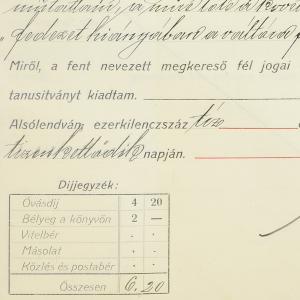 mutattam, a mint
fedezet hiányában a váltóra
Miről, a fent nevezett megkereső fél jogai
tanusitványt kiadtam.
Alsólendván, ezerkilenczszáz tíz
tizenkettedik napján.
Díjjegyzék:
Óvásdij 4 20
Bélyeg a könyvön 2 —
Vitelbér . .
Másolat . .
Közlés és postabér . .
Összesen 6.20